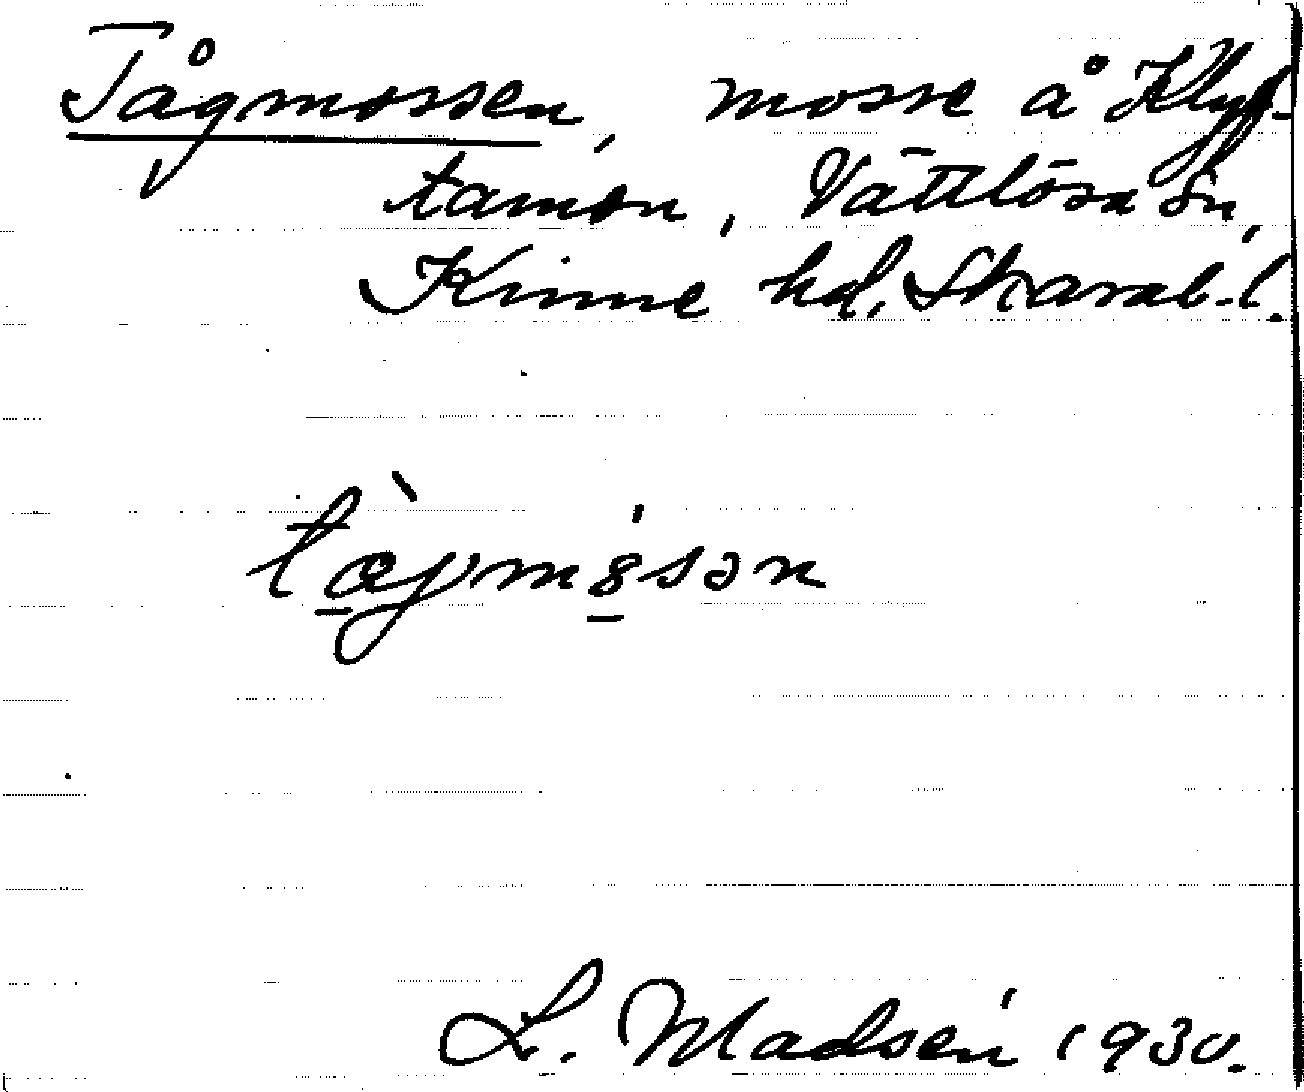 Tågmossen, mosse å Klyf-
tamon, Vättlösa sn,
Kinne hd, Skarab. l.
tægmósən
L. Madsén 1930.